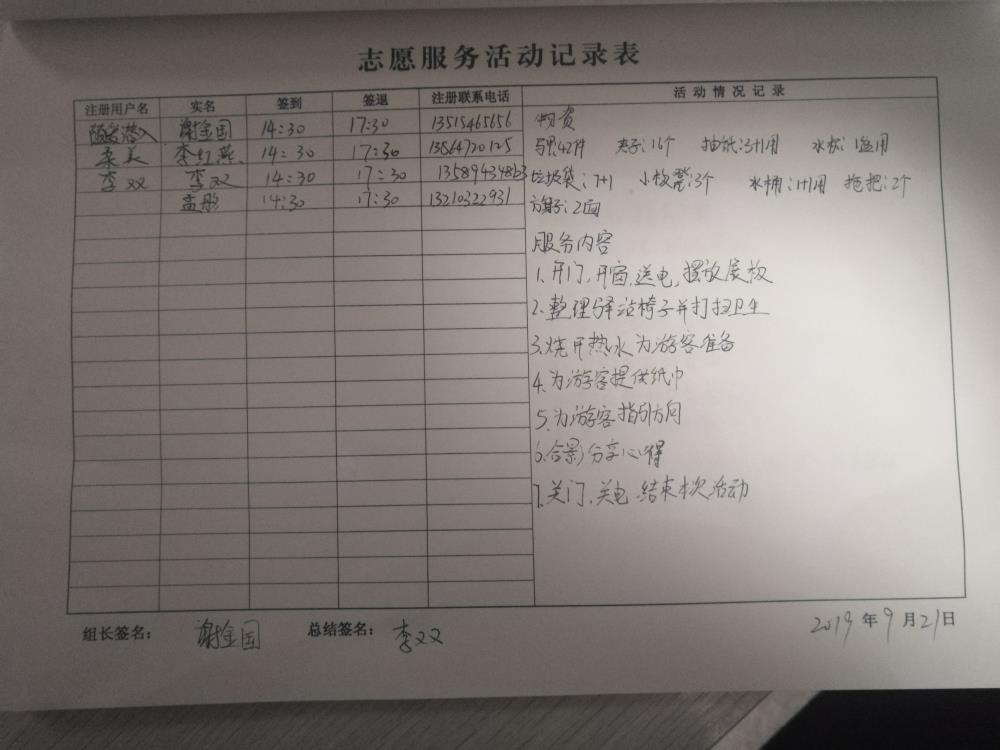 志愿服务活动记录表
注册用户名 实名 签到 签退 注册联系电话 活动情况记录
谢金国 14:30 17:30 13515465656
柔美 李红燕 14:30 17:30 13864720125
李双 李双 14:30 17:30 13589434863
孟彤 14:30 17:30 13210322931
物资
马甲:42件 夹子:16个 抽纸:3+1用 水杯:1盒用
垃圾袋:7+1 小板凳:3个 水桶:1+1用 拖把:2个
旗子:2面
服务内容
1.开门,开窗,送电,摆放展板
2.整理驿站椅子并打扫卫生
3.烧开热水为游客准备
4.为游客提供纸巾
5.为游客指引方向
6.合影分享心得
7.关门、关电、结束本次活动
组长签名: 谢金国 总结签名: 李双 2019年9月21日